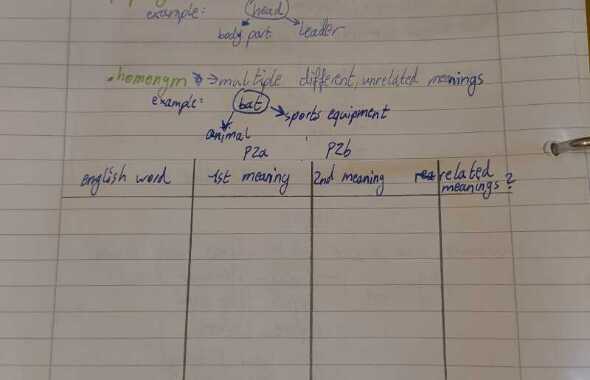 example: head
body part leader
• homonym → multiple different, unrelated meanings
example: bat
sports equipment
animal
P2a P2b
english word 1st meaning 2nd meaning related
meanings?